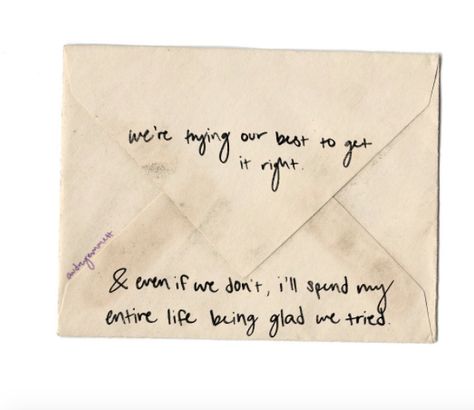 we're trying our best to get
it right.
audreyemmett
& even if we don't, i'll spend my
entire life being glad we tried.